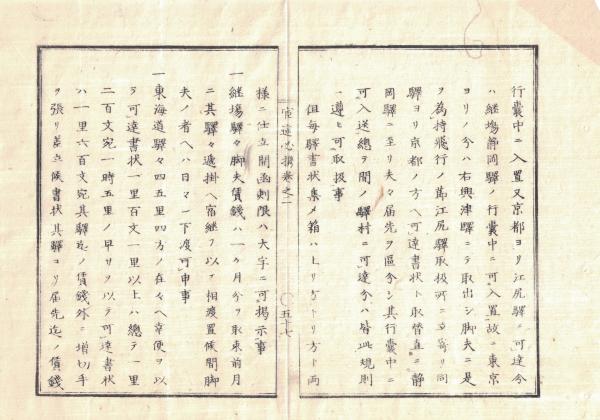 行嚢中ニ入置又京都ヨリ江尻驛ニ可達分
ハ継塲静岡驛ノ行嚢中ニ可入置故ニ東京
ヨリノ分ハ右興津驛ニテ取出シ脚夫ニ是
ヲ為持飛行ノ節江尻驛取扱所ニ立寄リ同
驛ヨリ京都ノ方ヘ可達書状ト取替直ニ静
岡驛ニ至リ夫々届先ヲ區分シ其行嚢中ニ
可入送總テ間ノ驛村ニ可達分ハ皆此規則
ニ遵ヒ可取扱事
但毎驛書状集メ箱ハ上リ方下リ方ト両
様ニ仕立開函刺限ハ大字ニ可掲示事
一継塲驛々脚夫賃錢ハ一ヶ月分ヲ取束前月
ニ其驛々逓掛ヘ宿継ヲ以テ相渡置候間脚
夫ノ者ヘハ日々ニ下渡可申事
一東海道驛々四五里四方ノ在々ヘ幸便ヲ以
テ可達書状一里百文一里以上ハ總テ一里
二百文宛一時五里ノ早リヲ以テ可達書状
ハ一里六百文宛其驛迄ノ賃錢外ニ増切手
ヲ張リ差立候書状其驛ヨリ届先迄ノ賃錢
五十七